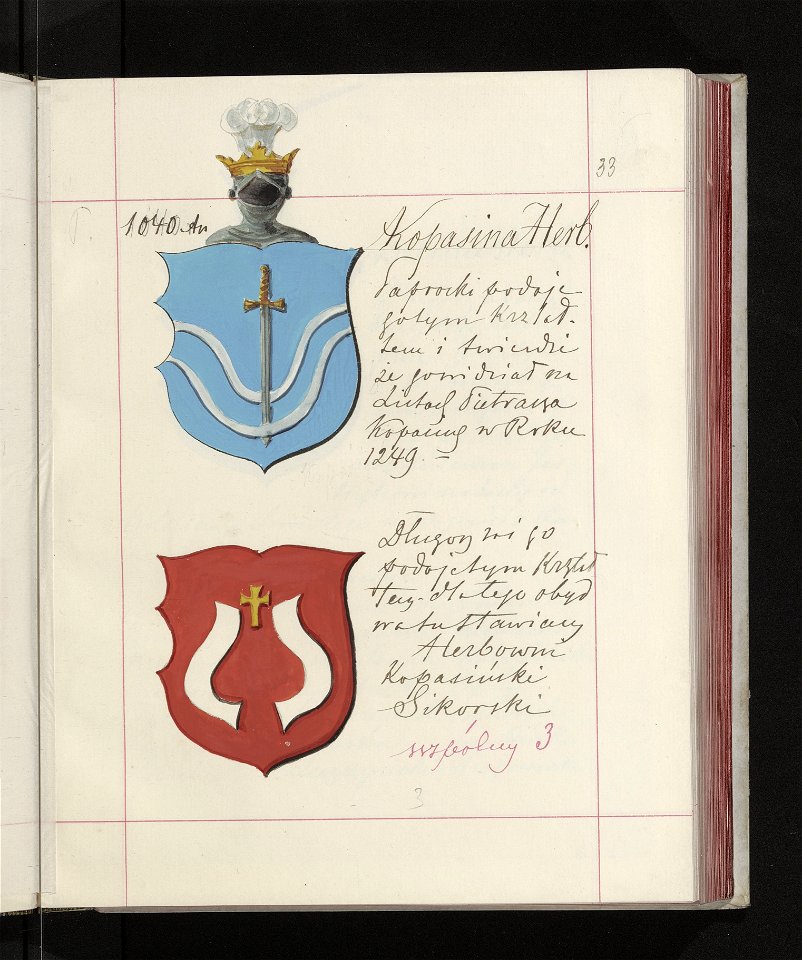 33
1040 An
Kopasina Herb.
Paprocki podaje
gotym Krztał-
tem i twierdzi
że powidział na
Listach Pietrasza
Kopasiny w Roku
1249. –
Długosz wi go
podaje tym Krztał
tem dlatego obyd
wa tu stawiamy
Herbowni
Kopasiński
Sikorski
wspólny 3
3